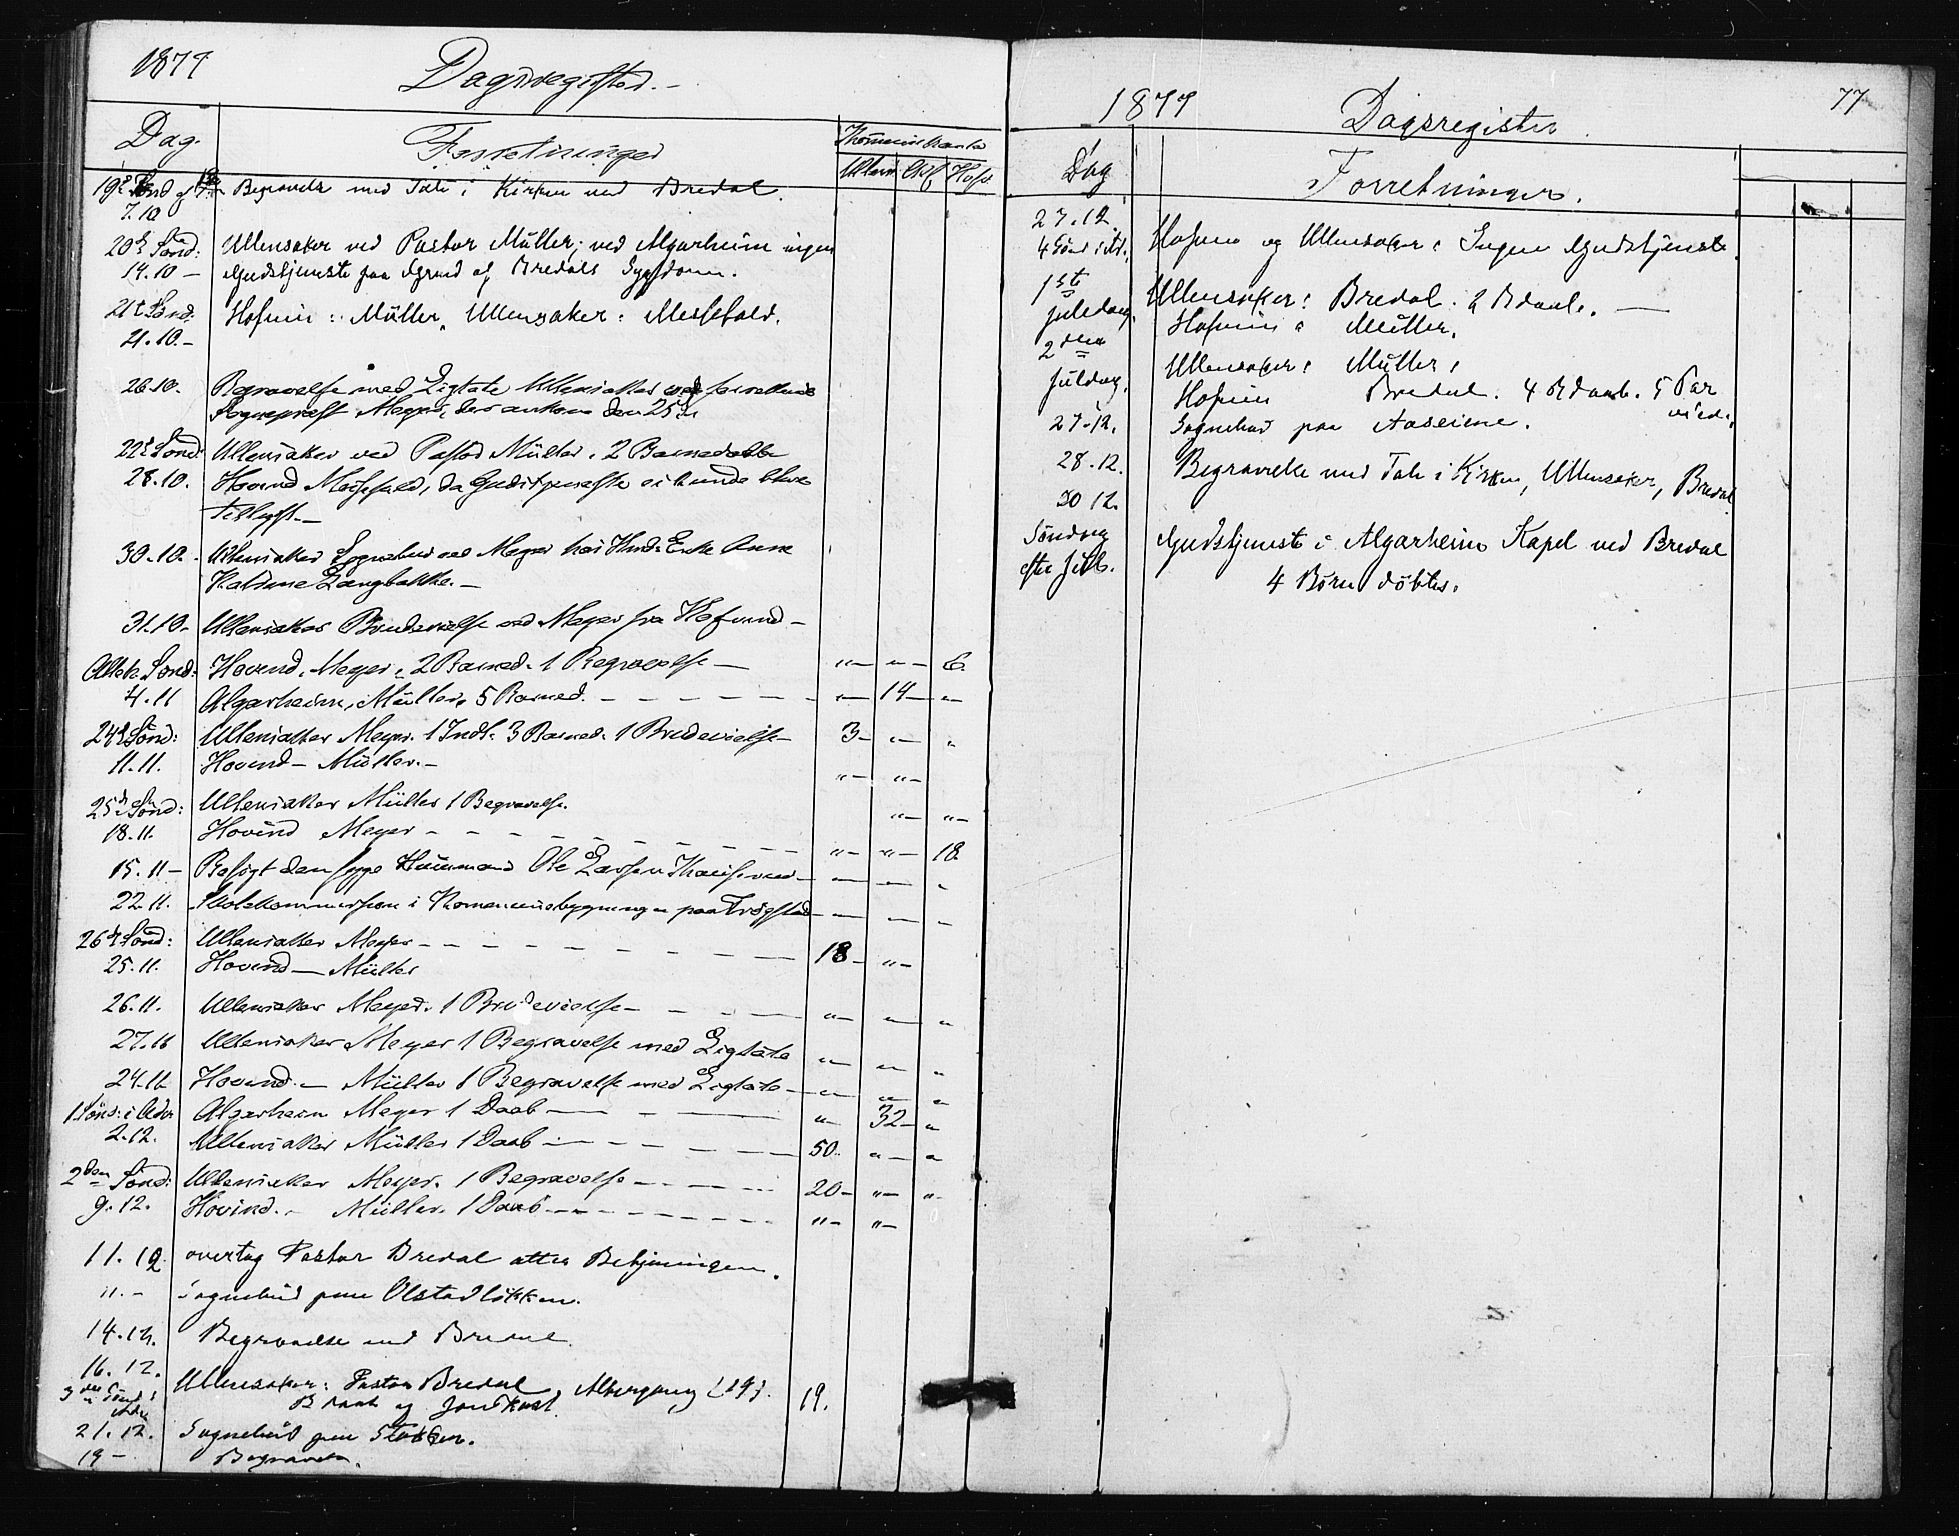 1877
Dagsregister.
Dag.
Forretninger
Kommunikanter
Ullens. Alg. Hofv.
19de Sønd. Begravelse med Tale i Kirken ved Bredal.
7.10
20de Sønd: Ullensaker ved Pastor Müller; ved Algarheim ingen
14.10 – Gudstjeneste paa Grund af Bredals Sygdom.
21de Sønd. Hofvin: Müller, Ullensaker: Messefald.
21.10.–
26.10. Begravelse med Ligtale Ullensaker ved
Sogneprest Meyer, der ankom den 25de
22de Sønd: Ullensaker ved Pastor Müller. 2 Barnedaab
28.10. Hovind Messefald, da Gudstjeneste ei kunde blive
tillyst.–
30.10. Ullensaker Sognebud ved Meyer hos Enke Anne
Langbakke.–
31.10. Ullensaker Brudevielse ved Meyer fra Hofvind –
Alleh. Sønd: Hovind. Meyer. 2 Barned. 1 Begravelse – "– "– 6.
4.11 Algarheim, Müller. 5 Barned. – – – – – "– 14– "–
24de Sønd: Ullensaker Meyer. 1 Indl. 3 Barned. 1 Brudevielse– 3– "– "
11.11. Hovind – Müller.– "– "–
25de Sønd: Ullensaker Müller 1 Begravelse. "– "–
18.11. Hovind Meyer – – – – – – "– "– 18
15.11 – Besøgt den syge Huusmand Ole Larsen
22 11. Skolekommission i Kommunebygningen paa Trøgstad
26de Sønd: Ullensaker Meyer – – – – – – – 18– "–
25.11. Hovind – Müller
26.11. Ullensaker Meyer. 1 Brudevielse – – – "– "– "
27.11 Ullensaker Meyer 1 Begravelse med Ligtale "– "– "
24.11 Hovind – Müller 1 Begravelse med Ligtale – "– "– "
1 Sønd: i Adv Algarheim Meyer 1 Daab – – – "– 32– "
2.12. Ullensaker Müller 1 Daab – – – – 50. "– "
2den Sønd: Ullensaker Meyer. 1 Begravelse – – – – 20– "– "–
9.12. Hovind. – Müller. 1 Daab – – – – – "– "–
11.12 overtog Pastor Bredal atter Betjeningen.
11.– Sognebud paa Olstadløkken.
14.12. Begravelse ved Bredal.
16.12. Ullensaker: Pastor Bredal, Altergang (19). 19.
3die Sønd i Adv. Daab og Jordkast.
21.12. Sognebud paa
19 – Begravelse.
1877
Dagsregister.
77
Dag
Forretninger.
23.12.
4 Sønd i Ad. Hofvin og Ullensaker: Ingen Gudstjeneste
1ste Ullensaker: Bredal. 2 Bdaab. –
juledag. Hofvin: Müller.
2den Ullensaker: Müller,
juledag. Hofvin Bredal. 4 Bdaab. 5 Par
viede.
27.12. Sognebud paa Aaseiene.
28.12. Begravelse med Tale i Kirken, Ullensaker, Bredal
30 12.
Søndag Gudstjeneste i Algarheim Kapel ved Bredal
efter Jul. 4 Børn døbtes.